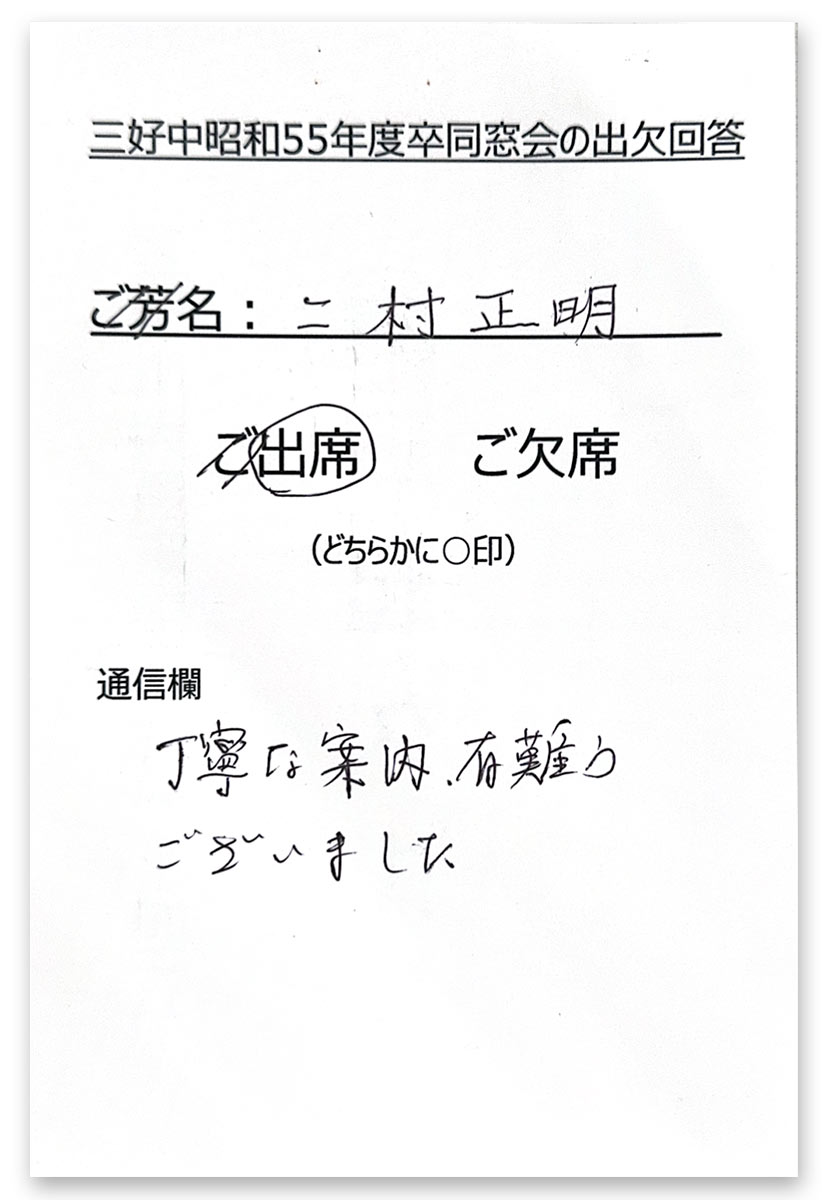 三好中昭和55年度卒同窓会の出欠回答
ご芳名：二村正明
ご出席 ご欠席
（どちらかに○印）
通信欄
丁寧な案内、有難う
ございました